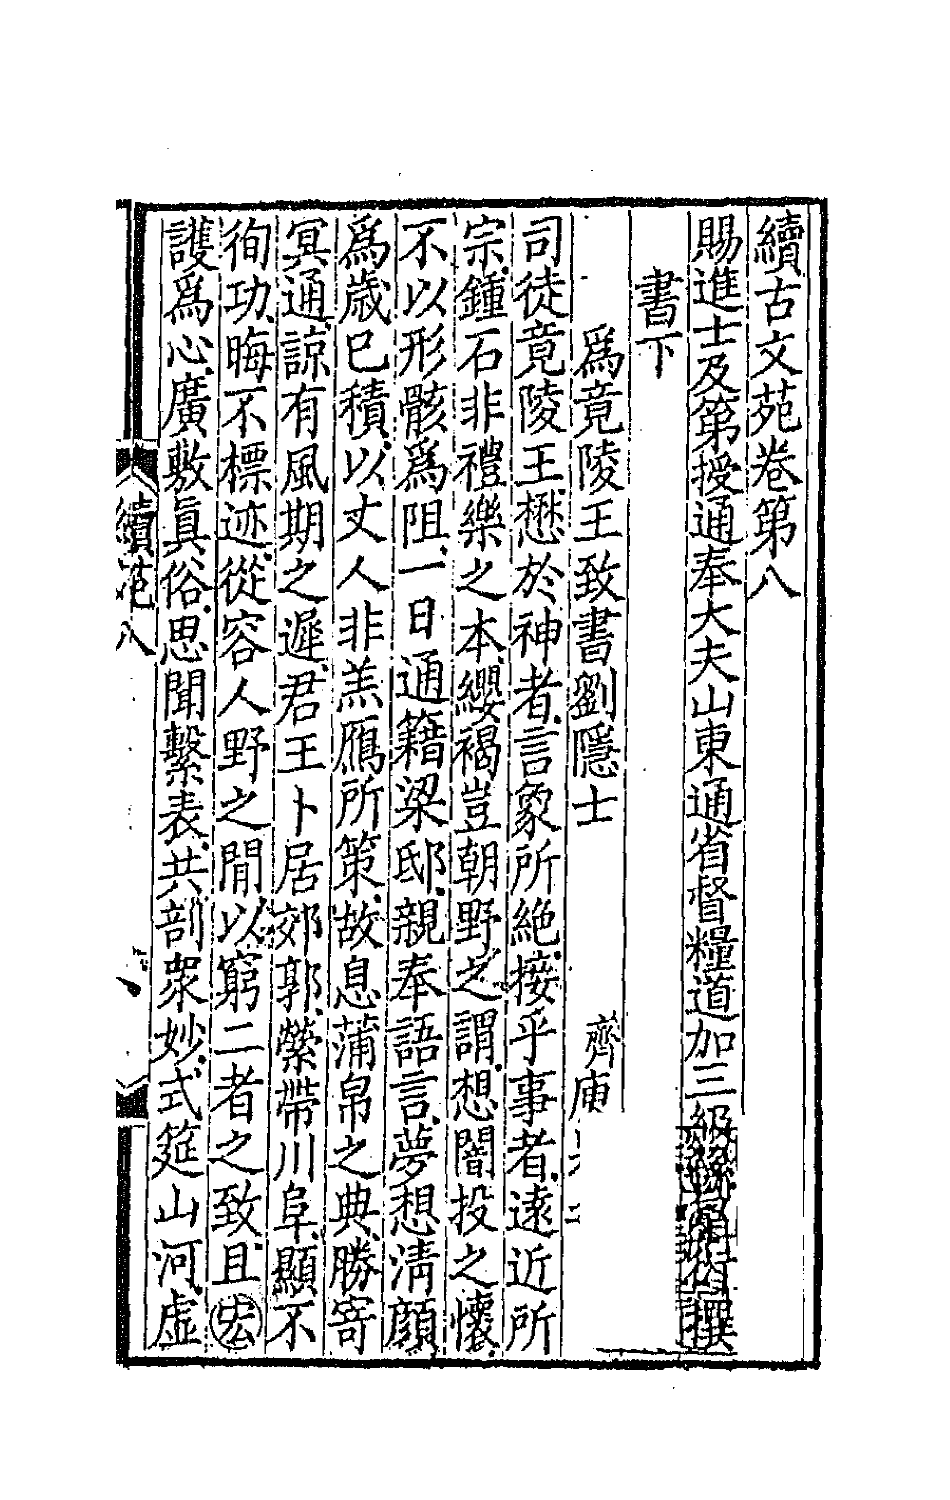 續古文苑卷第八
賜進士及第授通奉大夫山東通省督糧道加三級孫星衍撰
書下
爲竟陵王致書劉隱士　齊庾
司徒竟陵王懋於神者言象所絶接乎事者遠近所
宗鍾石非禮樂之本纓褐豈朝野之謂想闇投之懷
不以形骸爲阻一日通籍梁邸親奉語言夢想清顔
爲歲已積以丈人非羔鴈所策故息蒲帛之典勝寄
冥通諒有風期之遲君王卜居郊郭縈帶川阜顯不
徇功晦不標迹從容人野之閒以窮二者之致且宏
護爲心廣敷眞俗思聞繫表共剖衆妙式筵山河虛
續苑八